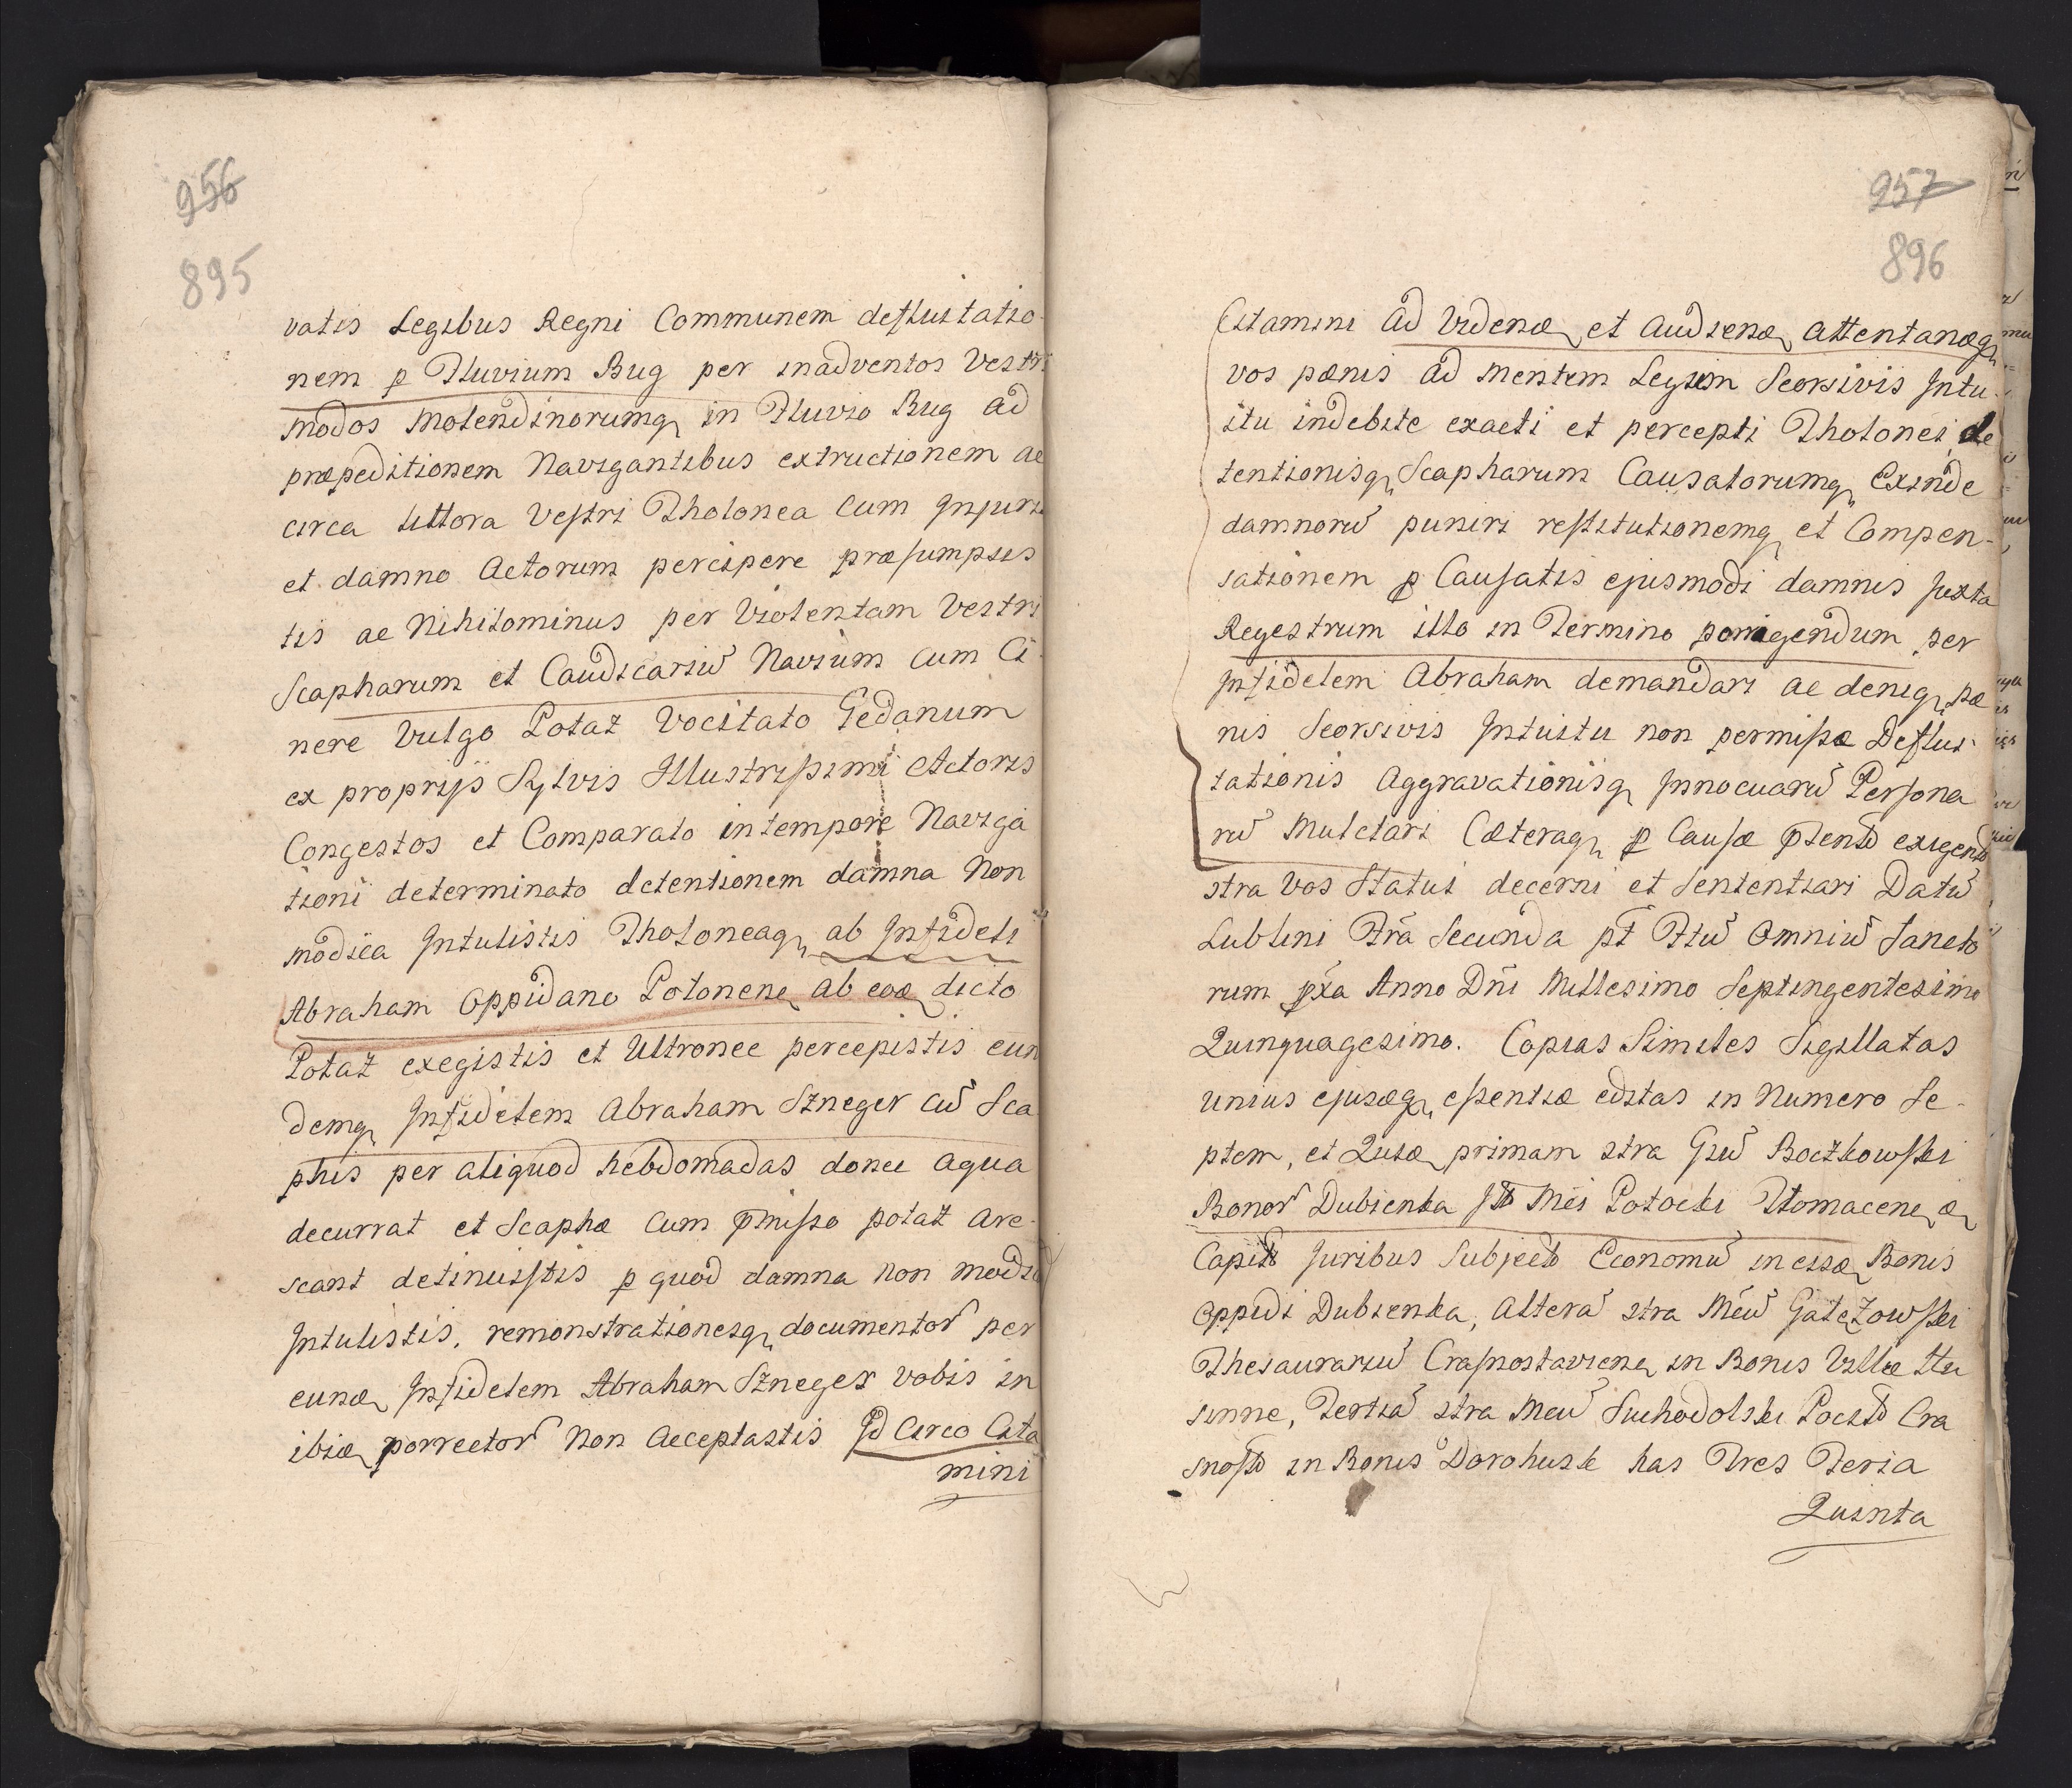 956
895
vatis Legibus Regni Communem defluitatio-
nem p Fluvium Bug per inadventos Vestri
modos Molendinorumq in Fluvio Bug ad
præpeditionem Navigantibus extructionem ac
circa littora Vestri Tholonea cum Injuria
et damno Actorum percipere præsumpsis
tis ac Nihilominus per Violentam Vestri
Scapharum et Caudicariũ Navium cum Ci-
nere Vulgo Potaż Vocitato Gedanum
ex proprijs Sylvis Illustrissimi Actoris
Congestos et Comparato in tempore Naviga
tioni determinato detentionem damna Non
modica Intulistis Tholoneaq ab Infideli
Abraham Oppidano Potonen ab eod dicto
Potaż exegistis et Ultronee percepistis eun
demq Infidelem Abraham Szneger cũ Sca
phis per aliquod hebdomadas donec Aqua
decurrat et Scaphæ cum pmisso potaż are-
scant detinuistis p quod damna non modica
Intulistis, remonstrationesq documentor per
eund Infidelem Abraham Szneger vobis in
ibid porrector Non Acceptastis Id circo Cita
mini
957
896
Citamini Ad Vidend et Audiend Attentandq
vos pœnis ad mentem Legum Seorsivis Intu-
itu indebite exacti et percepti Tholonei de
tentionisq Scapharum Causatorumq Exinde
damnorũ puniri restitutionemq et Compen-
sationem p Causatis ejusmodi damnis juxta
Regestrum illo in Termino porrigendum per
Infidelem Abraham demandari ac deniq pæ
nis Seorsivis Intuitu non permissæ Deflui-
tationis Aggravationisq Innocuarũ Persona
rũ Mulctari Cæteraq p Causæ ptentio exigent
stra Vos Statui decerni et Sententiari Datũ
Lublini Fra Secunda pt Ftũ Omniũ Sancto
rum pxa Anno Dñi Millesimo Septingentesimo
Quinquagesimo. Copias Similes Sigillatas
unius ejusdq essentiæ editas in Numero Se-
ptem, et Quid primam stra Gsũ Boczkowski
Bonor Dubienka Mci Potocki Tłomacen
Capit Juribus Subject Economũ in eisd Bonis
Oppidi Dubienka, Alterã stra Mcũ Gałęzowski
Thesaurariũ Crasnostavien in Bonis Villæ Hu
sinne, Tertiã stra Mcũ Suchodolski Pocit Cra
snost in Bonis Dorohusk has Tres Feria
Quinta